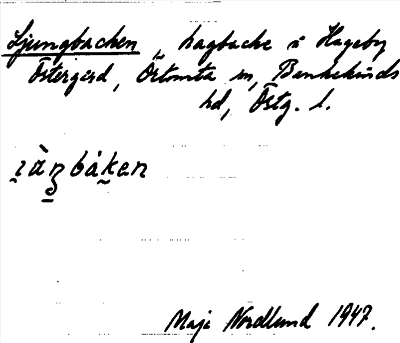 Ljungbacken, hagbacke i Hageby
Östergård, Örtomta sn, Bankekinds
hd, Östg. l.
Maji Nordlund 1947.